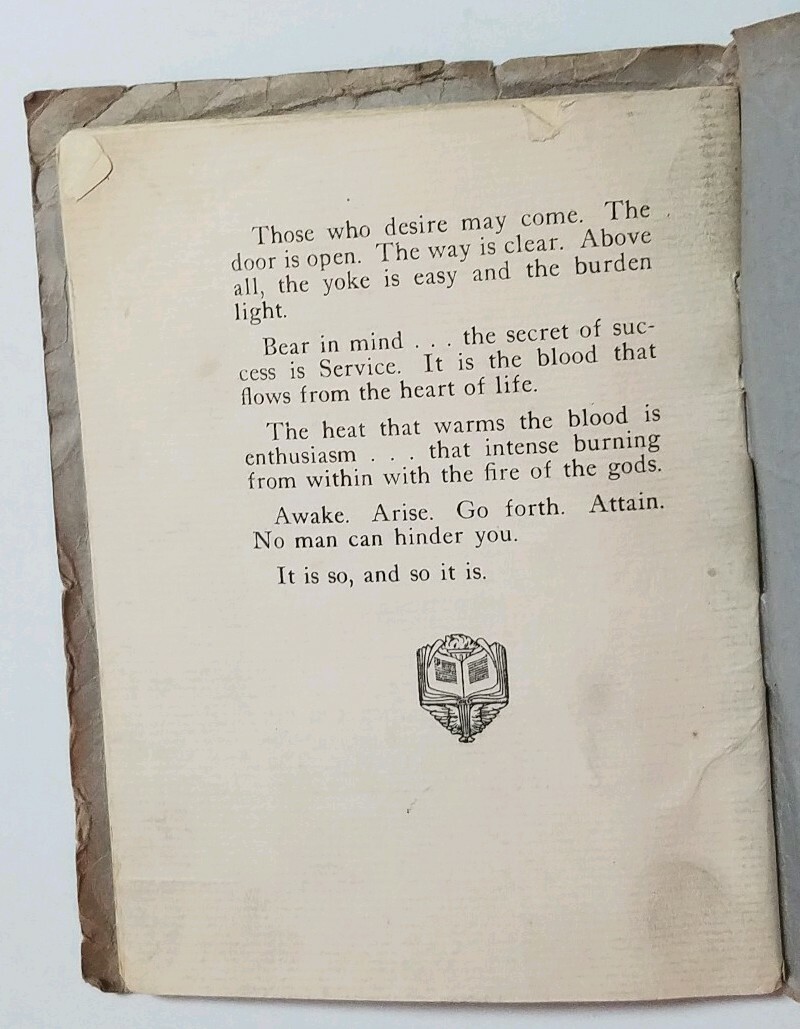 Those who desire may come. The
door is open. The way is clear. Above
all, the yoke is easy and the burden
light.
Bear in mind . . . the secret of suc-
cess is Service. It is the blood that
flows from the heart of life.
The heat that warms the blood is
enthusiasm . . . that intense burning
from within with the fire of the gods.
Awake. Arise. Go forth. Attain.
No man can hinder you.
It is so, and so it is.